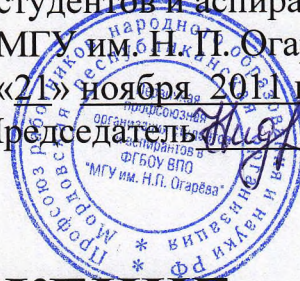 студентов и аспира
МГУ им. Н. П. Огар
«21» ноября 2011 г
Председатель
Профсоюз работников народного образования и науки РФ
Мордовская республиканская организация
Первичная
профсоюзная
организация студентов
и аспирантов в
ФГБОУ ВПО
"МГУ им. Н.П. Огарёва"